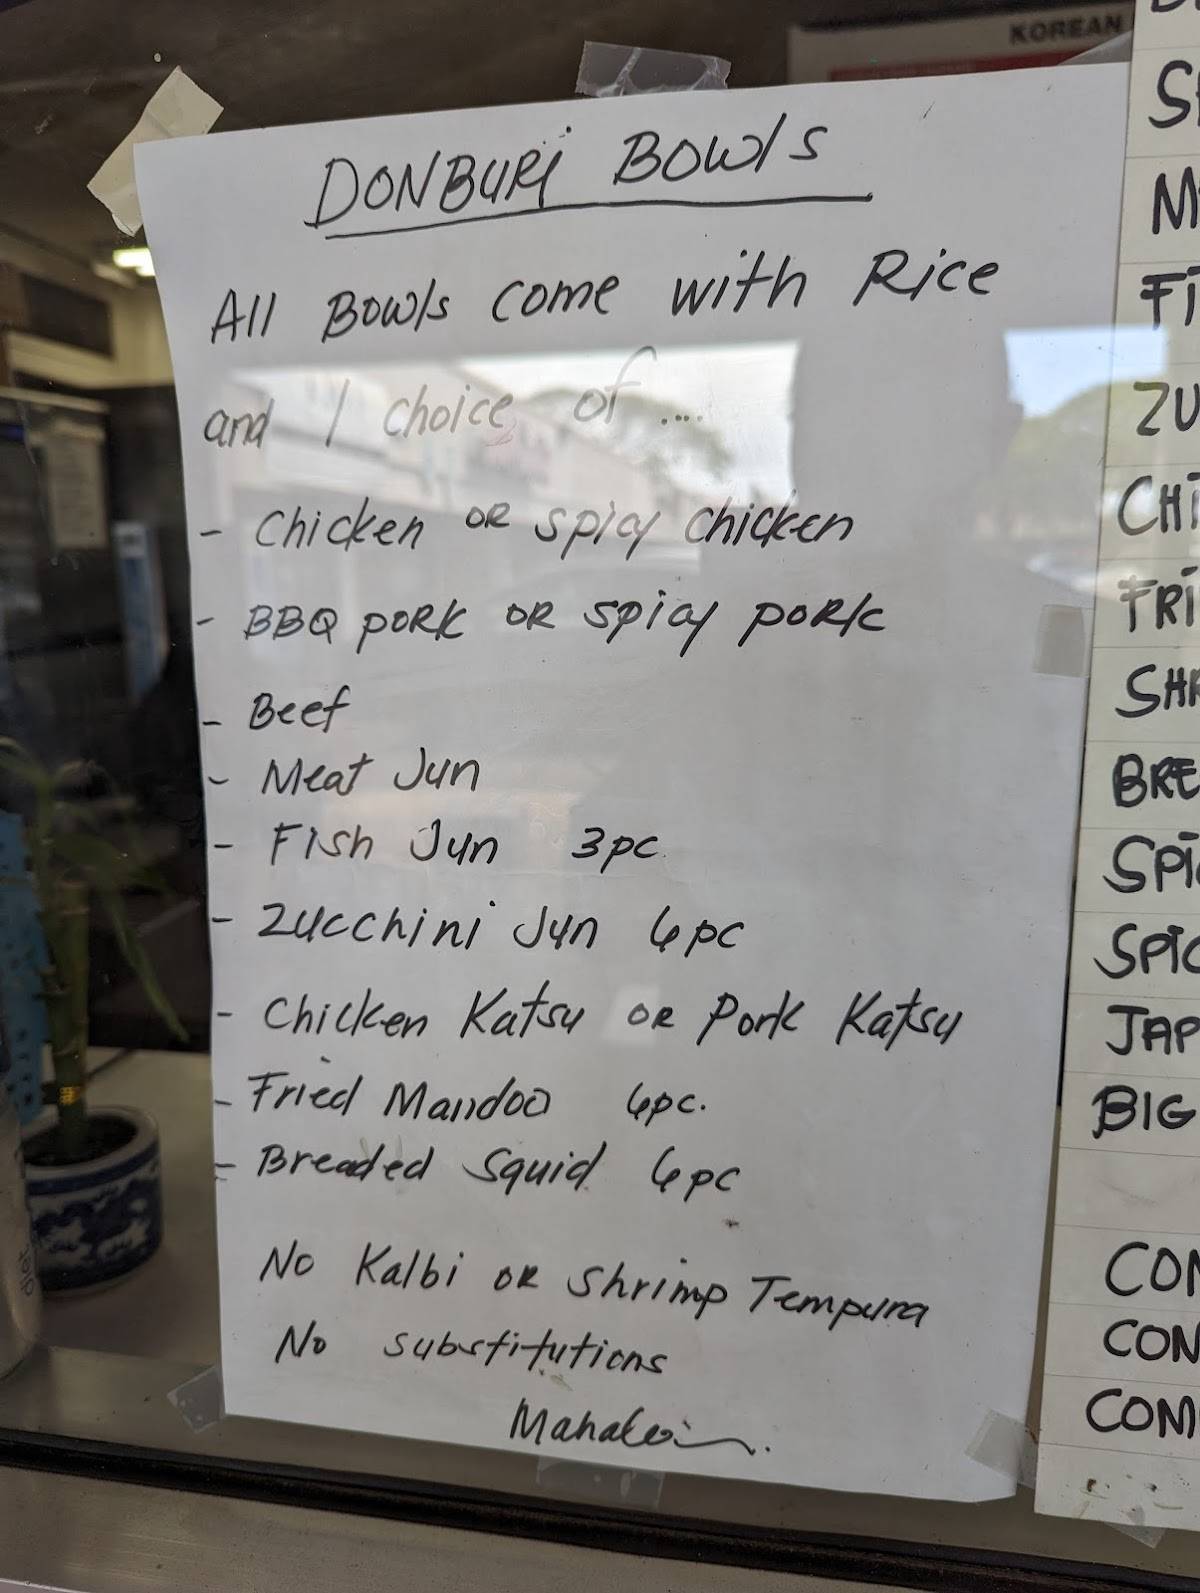 KOREAN
DONBURI BOWlS
All Bowls come with Rice
and 1 choice of ...
- Chicken OR spicy chicken
- BBQ pork OR spicy pork
- Beef
- Meat Jun
- Fish Jun 3pc.
- Zucchini Jun 6pc
- Chicken Katsu OR Pork Katsu
- Fried Mandoo 6pc.
- Breaded Squid 6pc
No Kalbi OR Shrimp Tempura
No substitutions
Mahalo
M
FI
ZU
CHI
FRI
BRE
SPI
SPIC
JAP
BIG
CON
COM
diet